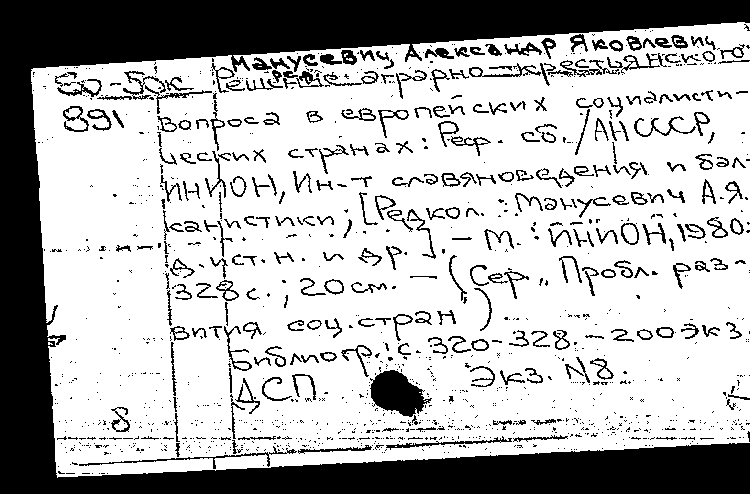 Манусевич, Александр Яковлевич
Ред.
50-50к Решение аграрно-крестьянского
891 вопроса в европейских социалисти-
ческих странах: Реф. сб./АН СССР,
ИНИОН, Ин-т славяноведения и бал-
канистики; [Редкол.: Манусевич А.Я.
д.ист.н. и др.]. - М.: ИНИОН, 1980.
328с.; 20см. - (Сер. „Пробл. раз-
вития соц.стран")
Библиогр.: с. 320-328. - 200экз.
ДСП. Экз. N8.
8